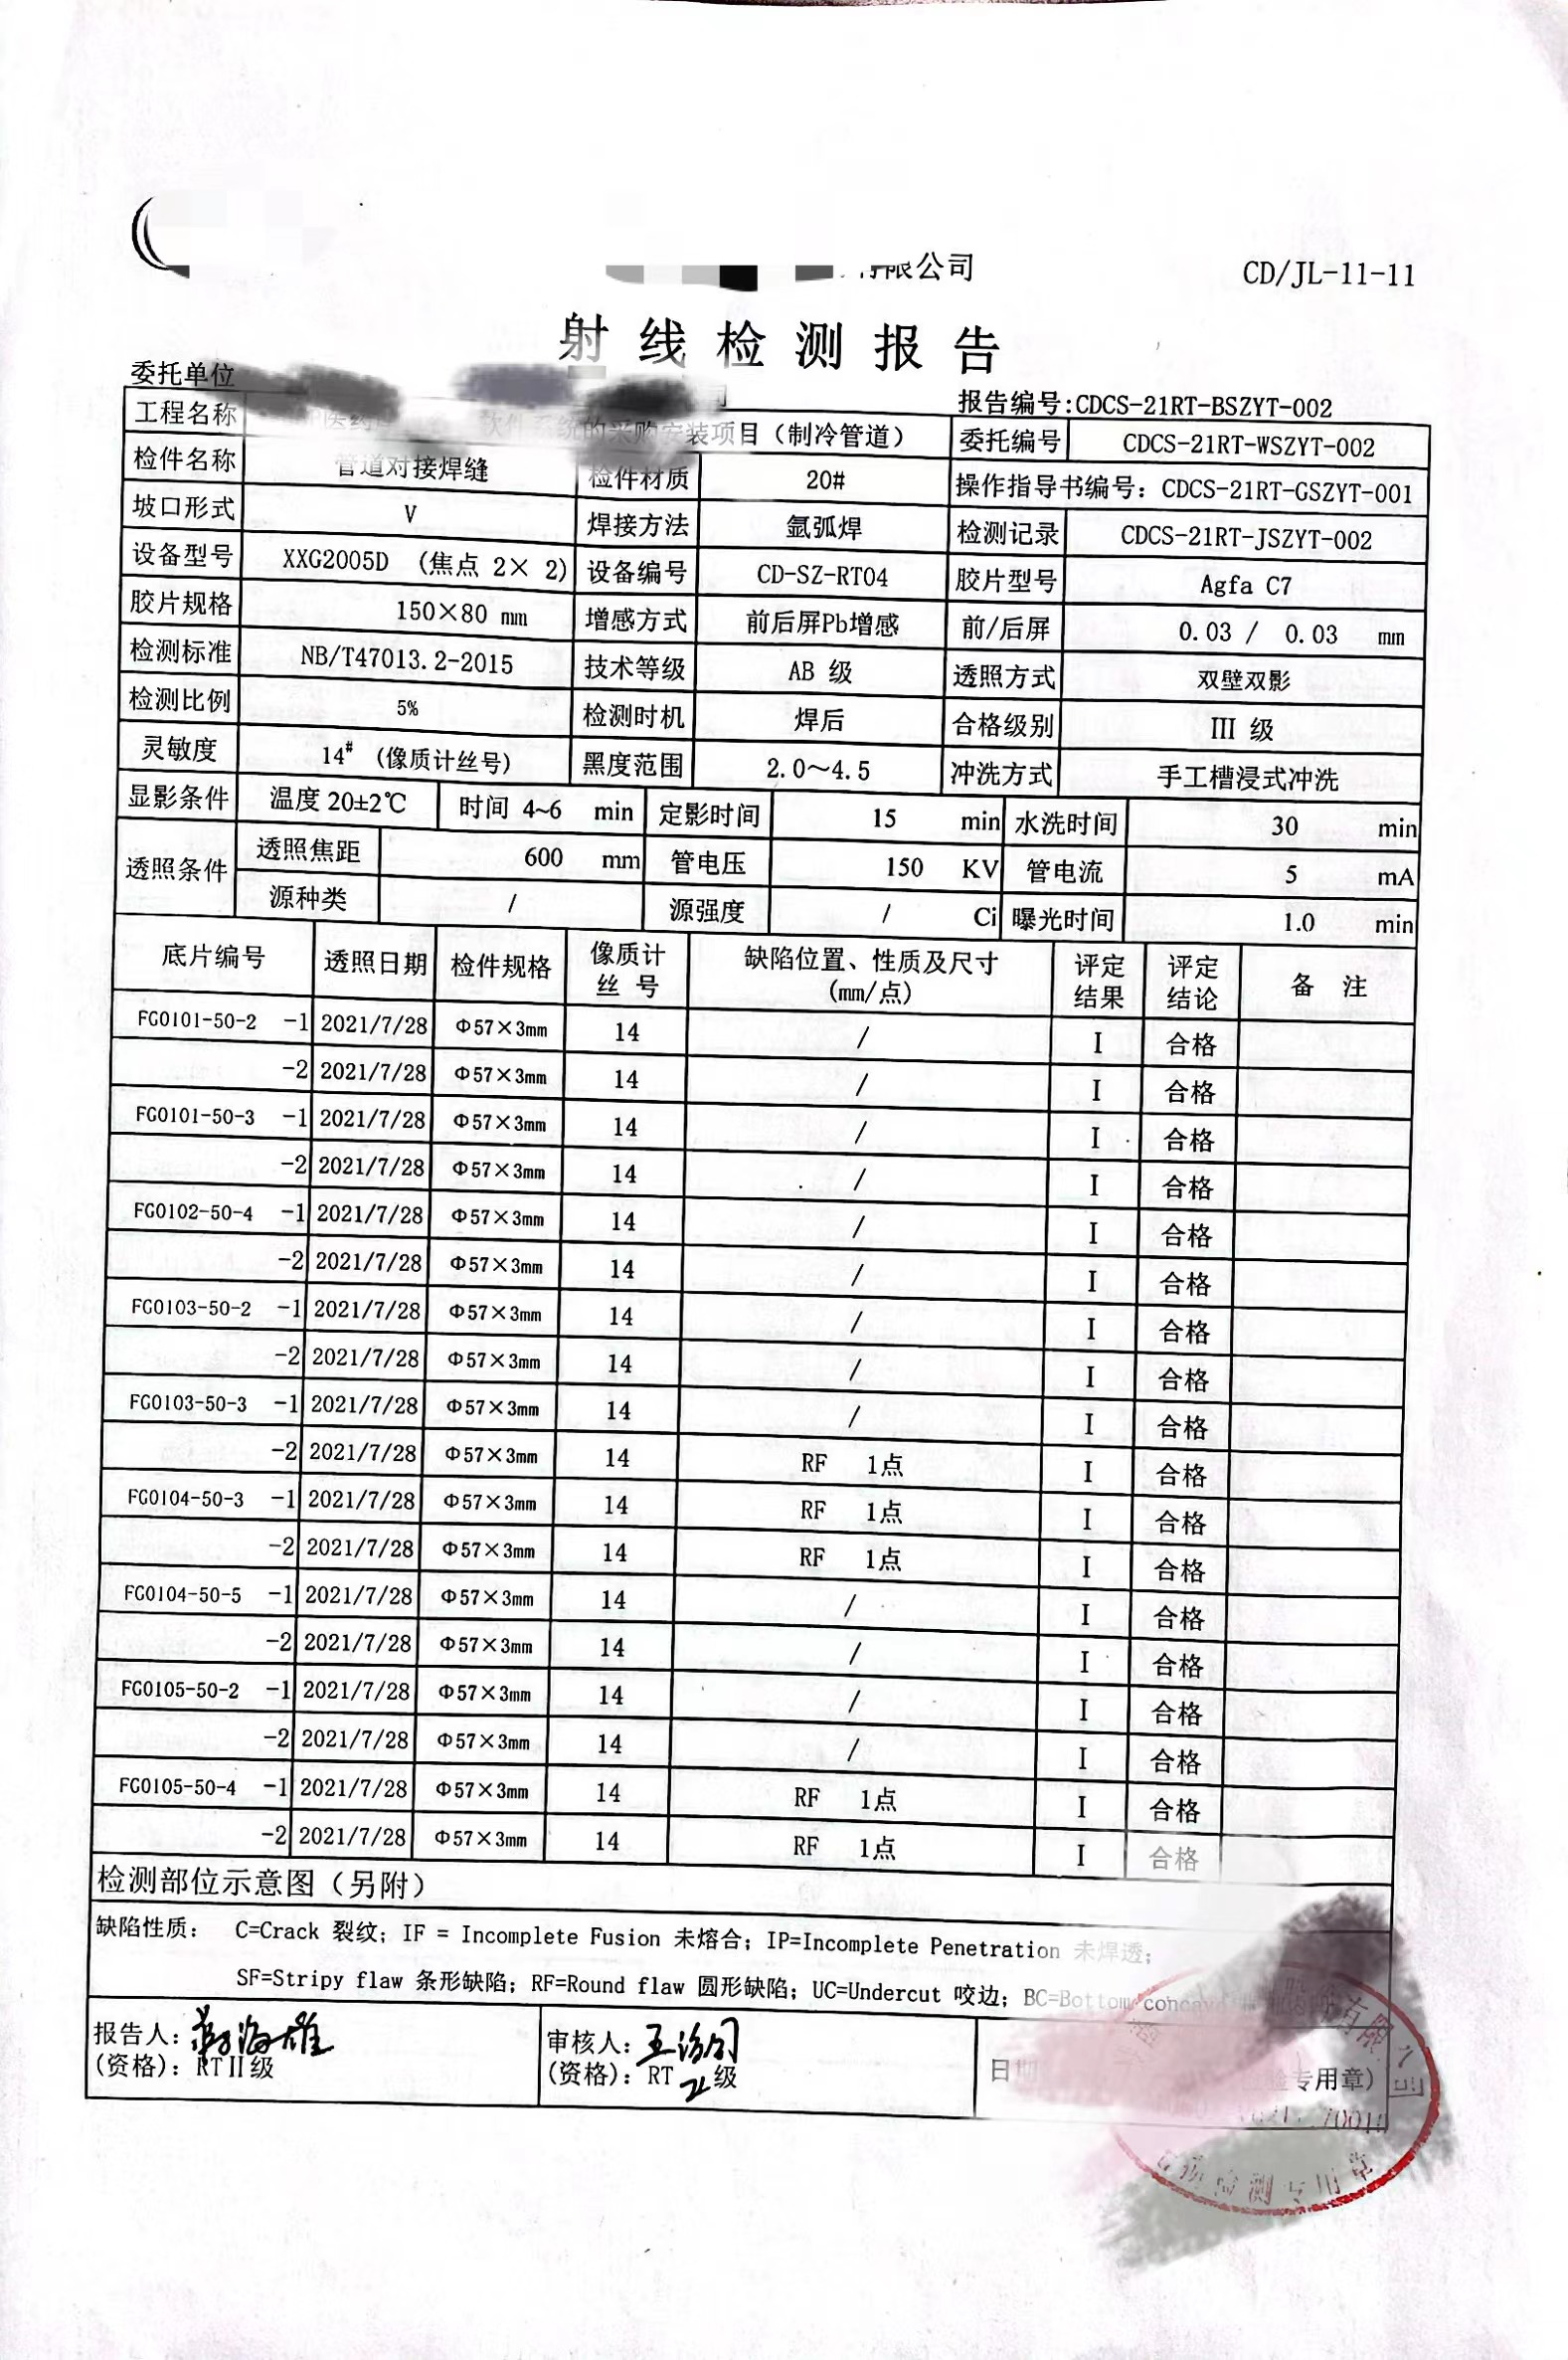 限公司
CD/JL-11-11
射线检测报告
委托单位
报告编号:CDCS-21RT-BSZYT-002
工程名称 采购安装项目（制冷管道） 委托编号 CDCS-21RT-WSZYT-002
检件名称 管道对接焊缝 检件材质 20# 操作指导书编号: CDCS-21RT-GSZYT-001
坡口形式 V 焊接方法 氩弧焊 检测记录 CDCS-21RT-JSZYT-002
设备型号 XXG2005D （焦点 2× 2) 设备编号 CD-SZ-RT04 胶片型号 Agfa C7
胶片规格 150×80 mm 增感方式 前后屏Pb增感 前/后屏 0.03 / 0.03 mm
检测标准 NB/T47013.2-2015 技术等级 AB 级 透照方式 双壁双影
检测比例 5% 检测时机 焊后 合格级别 III 级
灵敏度 14# (像质计丝号) 黑度范围 2.0～4.5 冲洗方式 手工槽浸式冲洗
显影条件 温度 20±2℃ 时间 4~6 min 定影时间 15 min 水洗时间 30 min
透照条件 透照焦距 600 mm 管电压 150 KV 管电流 5 mA
源种类 / 源强度 / Ci 曝光时间 1.0 min
底片编号 透照日期 检件规格 像质计丝号 缺陷位置、性质及尺寸(mm/点) 评定结果 评定结论 备 注
FG0101-50-2 -1 2021/7/28 Φ57×3mm 14 / I 合格
-2 2021/7/28 Φ57×3mm 14 / I 合格
FG0101-50-3 -1 2021/7/28 Φ57×3mm 14 / I 合格
-2 2021/7/28 Φ57×3mm 14 / I 合格
FG0102-50-4 -1 2021/7/28 Φ57×3mm 14 / I 合格
-2 2021/7/28 Φ57×3mm 14 / I 合格
FG0103-50-2 -1 2021/7/28 Φ57×3mm 14 / I 合格
-2 2021/7/28 Φ57×3mm 14 / I 合格
FG0103-50-3 -1 2021/7/28 Φ57×3mm 14 / I 合格
-2 2021/7/28 Φ57×3mm 14 RF 1点 I 合格
FG0104-50-3 -1 2021/7/28 Φ57×3mm 14 RF 1点 I 合格
-2 2021/7/28 Φ57×3mm 14 RF 1点 I 合格
FG0104-50-5 -1 2021/7/28 Φ57×3mm 14 / I 合格
-2 2021/7/28 Φ57×3mm 14 / I 合格
FG0105-50-2 -1 2021/7/28 Φ57×3mm 14 / I 合格
-2 2021/7/28 Φ57×3mm 14 / I 合格
FG0105-50-4 -1 2021/7/28 Φ57×3mm 14 RF 1点 I 合格
-2 2021/7/28 Φ57×3mm 14 RF 1点 I 合格
检测部位示意图（另附）
缺陷性质： C=Crack 裂纹；IF = Incomplete Fusion 未熔合；IP=Incomplete Penetration 未焊透；
SF=Stripy flaw 条形缺陷；RF=Round flaw 圆形缺陷；UC=Undercut 咬边；BC=Bottom
报告人: 审核人: 王
(资格): RTⅡ级 (资格): RT 级 日期 专用章)
检测专用章